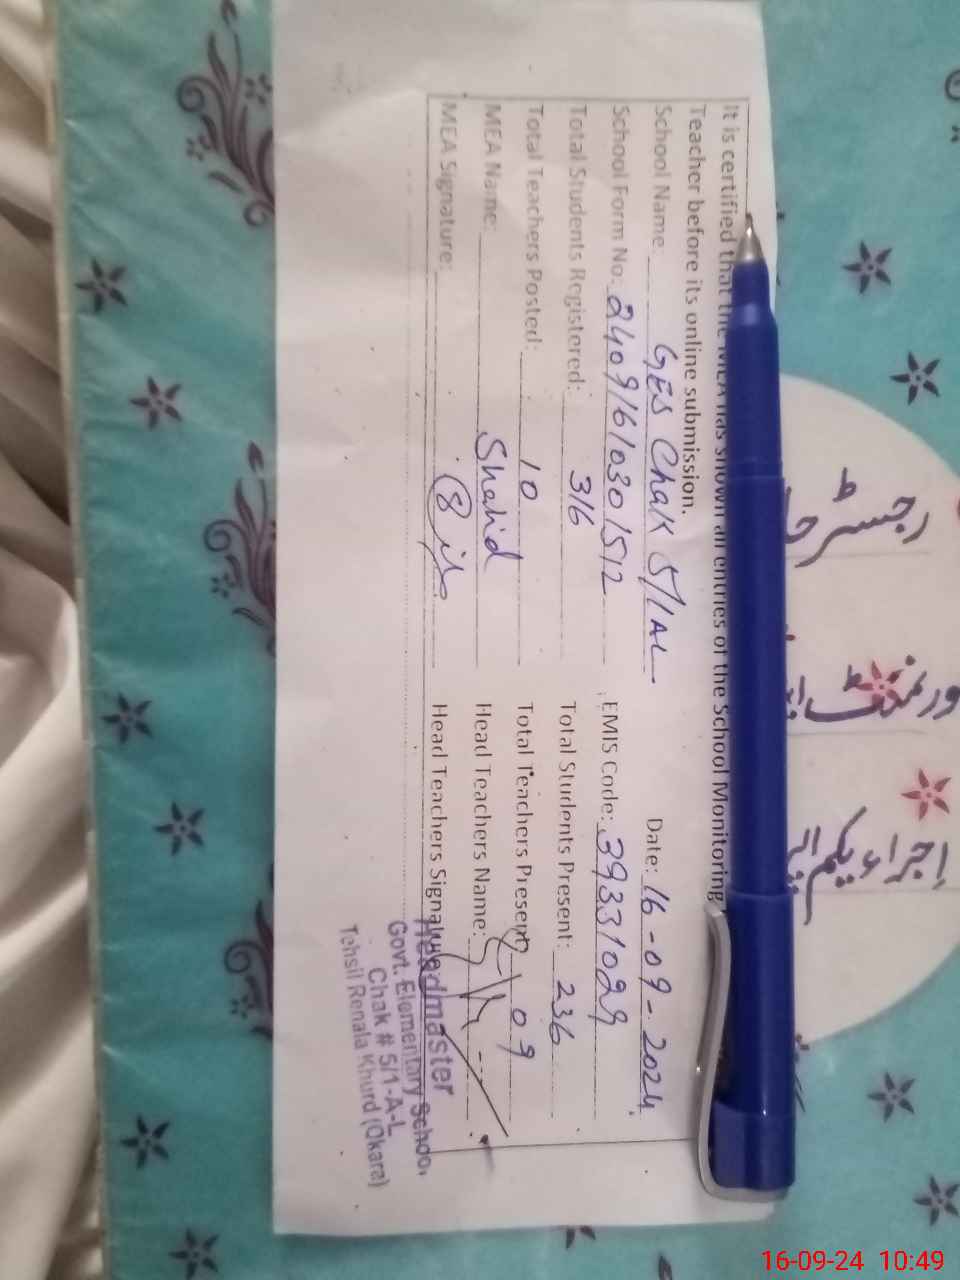 It is certified that the MEA has shown all entries of the School Monitoring
Teacher before its online submission.
School Name: GES Chak 5/1AL Date: 16-09-2024
School Form No: 24091610301512 EMIS Code: 39331029
Total Students Registered: 316 Total Students Present: 236
Total Teachers Posted: 10 Total Teachers Present: 09
MEA Name: Shahid Head Teachers Name:
MEA Signature: Head Teachers Signature
Headmaster
Govt. Elementary School,
Chak # 5/1-A-L
Tehsil Renala Khurd (Okara)
رجسٹر
اجراء یکم
16-09-24 10:49